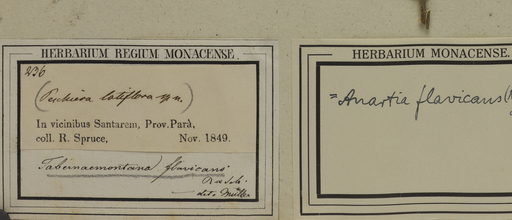 HERBARIUM REGIUM MONACENSE.
236
(Peschiera latiflora
In vicinibus Santarem, Prov. Parà,
coll. R. Spruce, Nov. 1849.
Tabernaemontana flavicans
det. Müller
HERBARIUM MONACENSE.
= Anartia flavicans